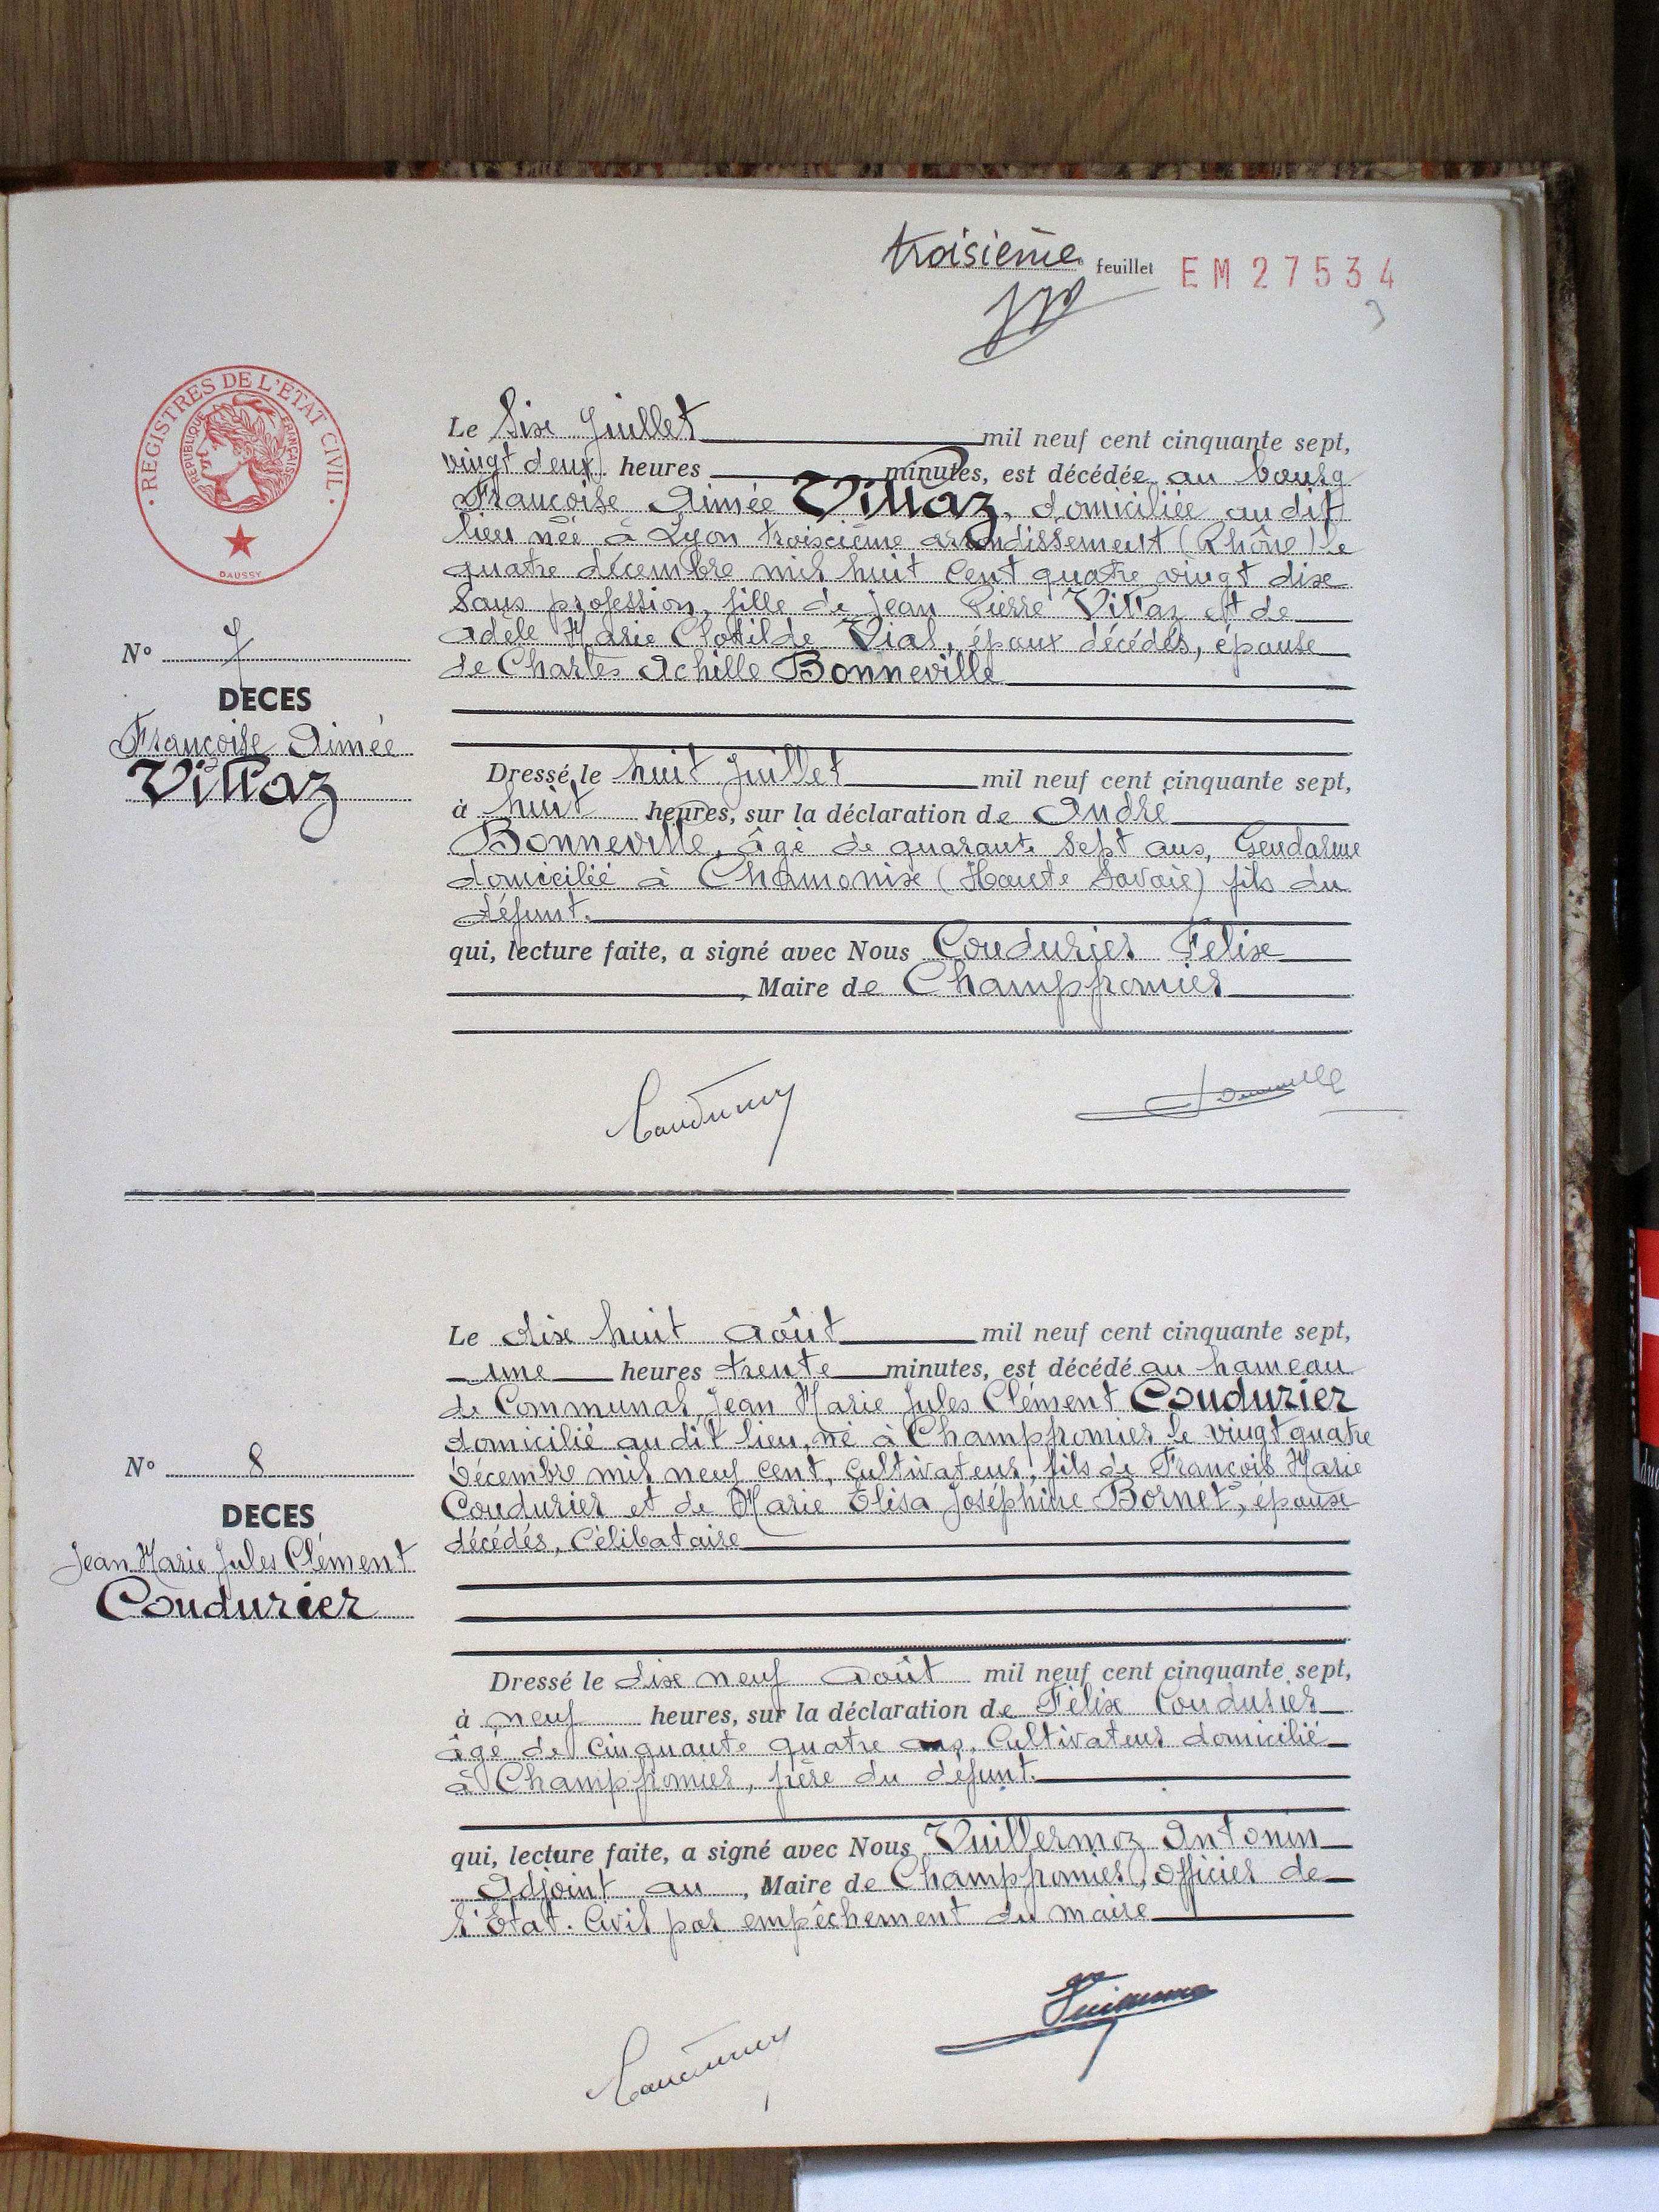 troisième feuillet EM 27534
3
REGISTRES DE L'ETAT CIVIL
REPUBLIQUE FRANÇAISE
DAUSSY
Le Six Juillet mil neuf cent cinquante sept,
vingt deux heures minutes, est décédée au bourg
Françoise Aimée Villaz, domiciliée au dit
lieu née à Lyon troisième arrondissement (Rhône) le
quatre décembre mil huit cent quatre vingt dix
Sans profession, fille de Jean Pierre Villaz et de
Adèle Marie Clotilde Vial, époux décédés, épouse
de Charles Achille Bonneville
N° 7
DECES
Françoise Aimée
Villaz
Dressé le huit Juillet mil neuf cent cinquante sept,
à huit heures, sur la déclaration de André
Bonneville, âgé de quarante sept ans, Gendarme
domicilié à Chamonix (Haute Savoie) fils du
défunt.
qui, lecture faite, a signé avec Nous Coudurier Félix
, Maire de Champfromier
Coudurier
Bonneville
Le dix huit Août mil neuf cent cinquante sept,
une heures trente minutes, est décédé au hameau
de Communal, Jean Marie Jules Clément Coudurier
domicilié au dit lieu, né à Champfromier le vingt quatre
Décembre mil neuf cent, cultivateur, fils de François Marie
Coudurier et de Marie Elisa Joséphine Bornet, épouse
décédés, Célibataire
N° 8
DECES
Jean Marie Jules Clément
Coudurier
Dressé le dix neuf Août mil neuf cent cinquante sept,
à neuf heures, sur la déclaration de Félix Coudurier
âgé de cinquante quatre ans, Cultivateur domicilié
à Champfromier, frère du défunt.
qui, lecture faite, a signé avec Nous Vuillermoz Antonin
Adjoint au , Maire de Champfromier, officier de
l'Etat. Civil par empêchement du maire
Coudurier